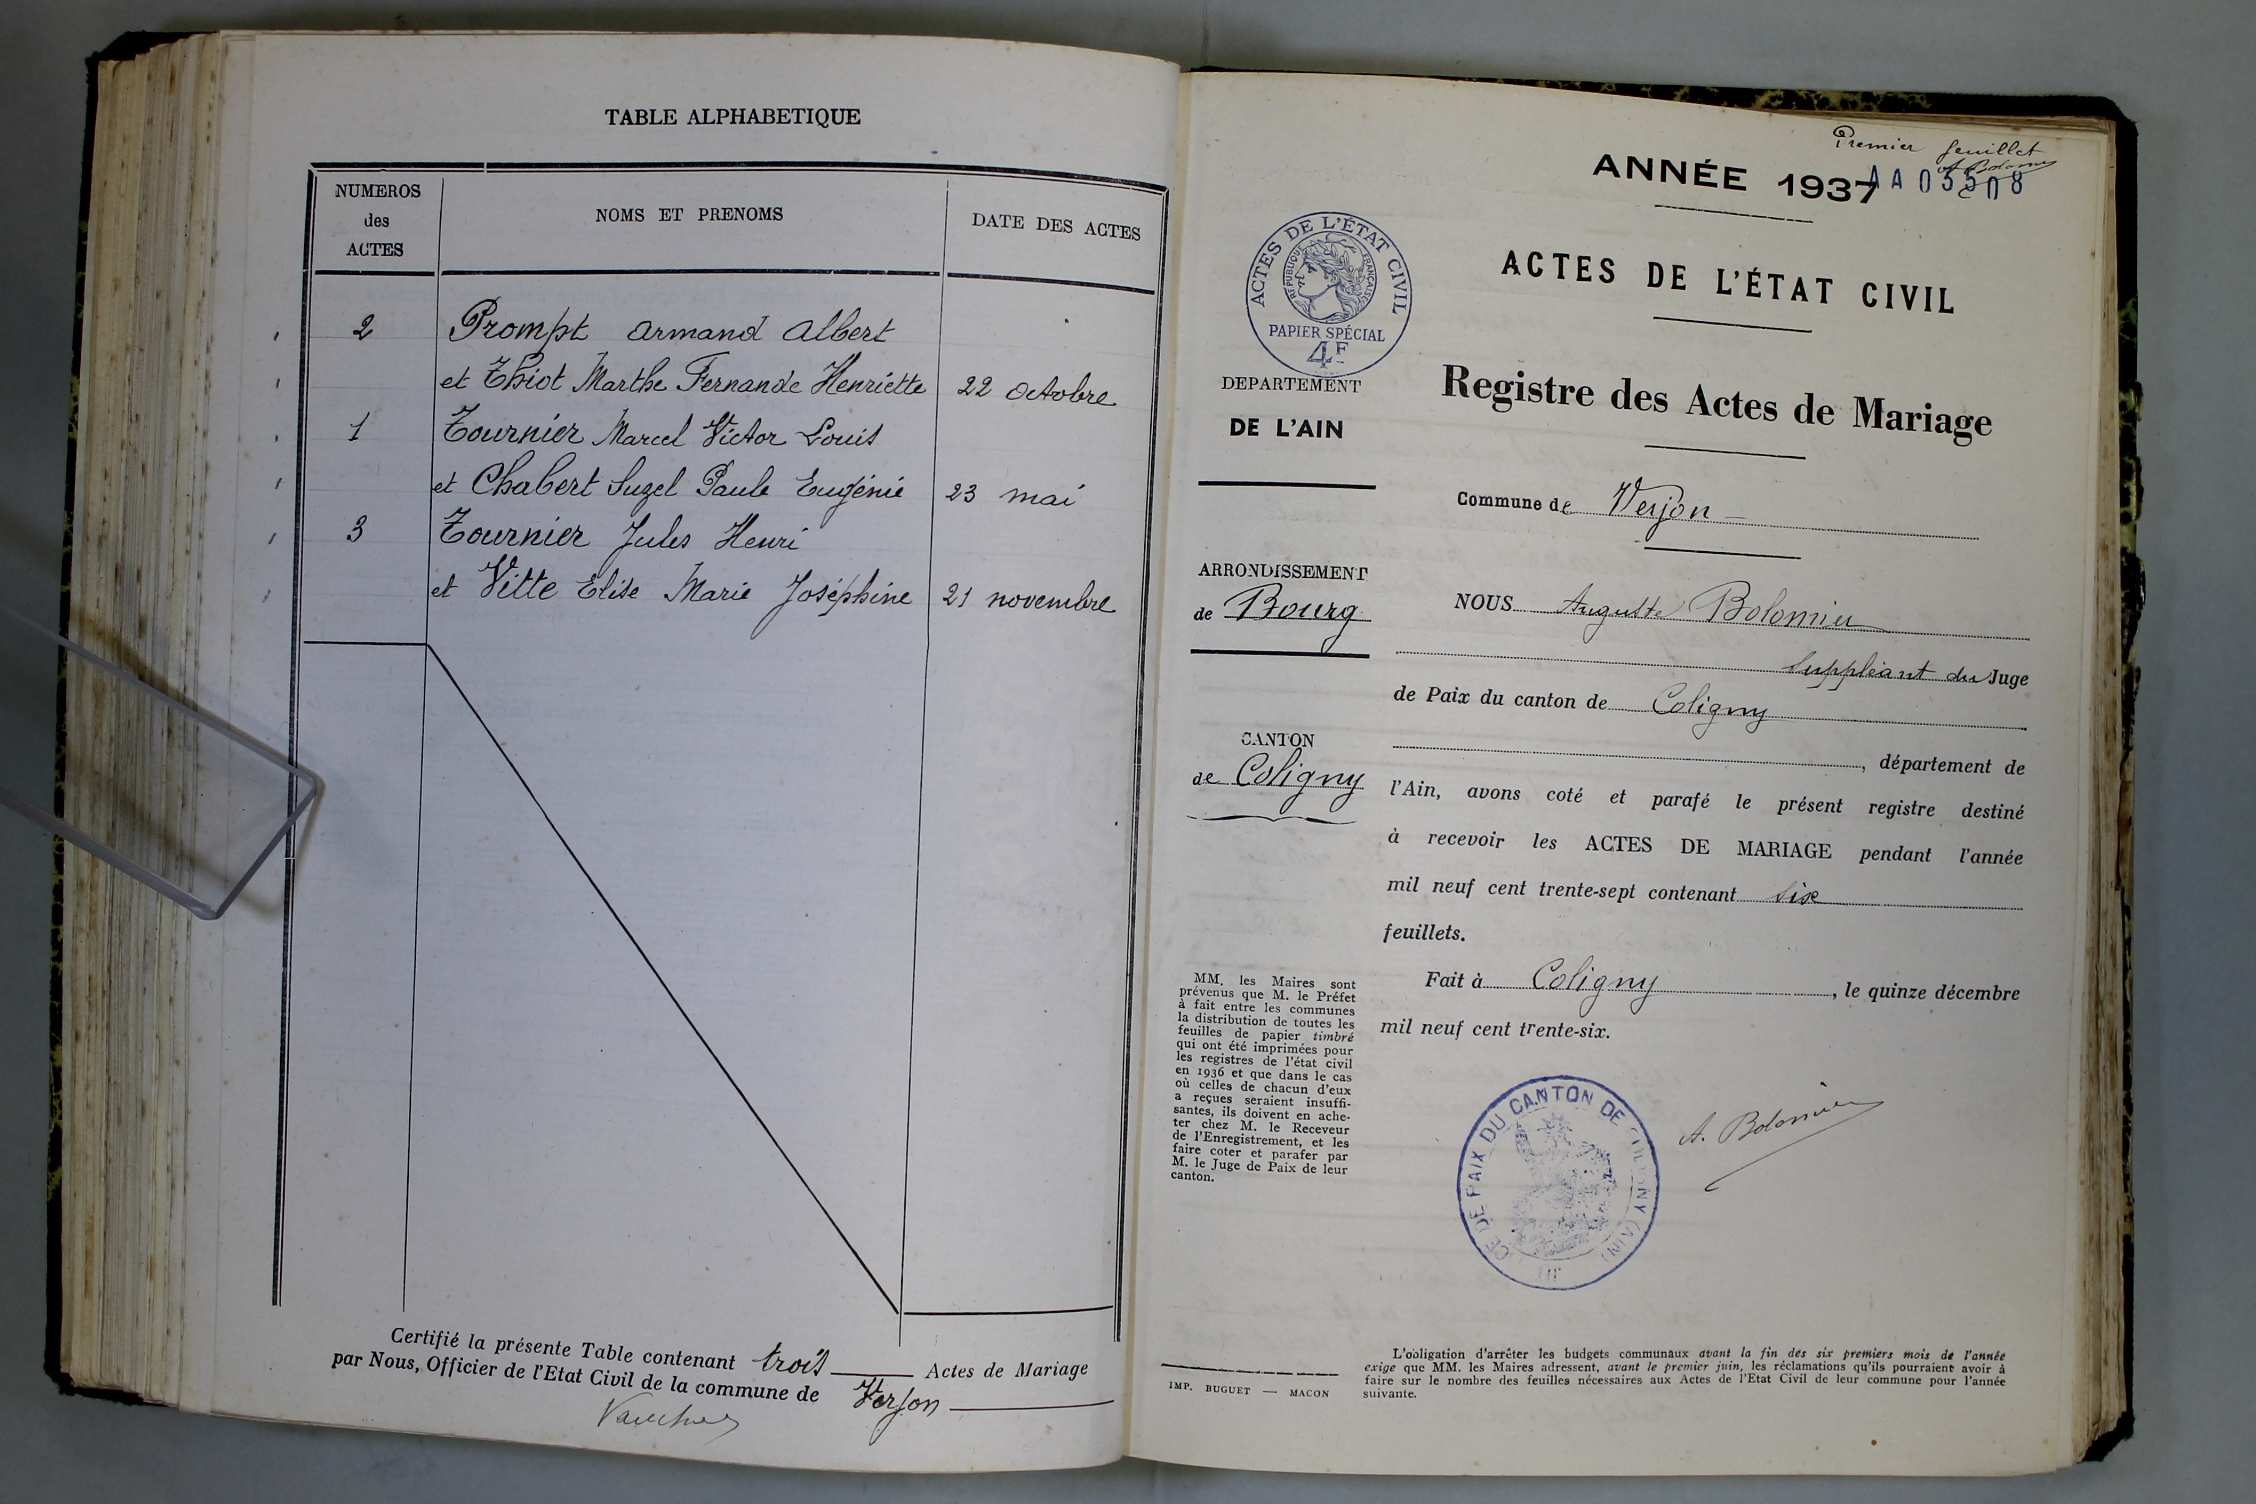 TABLE ALPHABETIQUE
NUMEROS
des
ACTES
NOMS ET PRENOMS
DATE DES ACTES
2 Prompt Armand Albert
et Thiot Marthe Fernande Henriette 22 octobre
1 Tournier Marcel Victor Louis
et Chabert Suzel Paule Eugénie 23 mai
3 Tournier Jules Henri
et Vitte Elise Marie Joséphine 21 novembre
Certifié la présente Table contenant trois Actes de Mariage
par Nous, Officier de l'Etat Civil de la commune de Verjon
Premier feuillet
A Bolomier
ANNÉE 1937
AA 03508
ACTES DE L'ÉTAT CIVIL
RÉPUBLIQUE FRANÇAISE
PAPIER SPÉCIAL
4F
ACTES DE L'ÉTAT CIVIL
Registre des Actes de Mariage
DEPARTEMENT
DE L'AIN
Commune de Verjon
ARRONDISSEMENT
de Bourg
CANTON
de Coligny
NOUS Auguste Bolomier
Suppléant du Juge
de Paix du canton de Coligny
, département de
l'Ain, avons coté et parafé le présent registre destiné
à recevoir les ACTES DE MARIAGE pendant l'année
mil neuf cent trente-sept contenant six
feuillets.
Fait à Coligny, le quinze décembre
mil neuf cent trente-six.
A. Bolomier
CE DE PAIX DU CANTON DE COLIGNY (AIN)
MM. les Maires sont
prévenus que M. le Préfet
à fait entre les communes
la distribution de toutes les
feuilles de papier timbré
qui ont été imprimées pour
les registres de l'état civil
en 1936 et que dans le cas
où celles de chacun d'eux
a reçues seraient insuffi-
santes, ils doivent en ache-
ter chez M. le Receveur
de l'Enregistrement, et les
faire coter et parafer par
M. le Juge de Paix de leur
canton.
IMP. BUGUET — MACON
L'obligation d'arrêter les budgets communaux avant la fin des six premiers mois de l'année
exige que MM. les Maires adressent, avant le premier juin, les réclamations qu'ils pourraient avoir à
faire sur le nombre des feuilles nécessaires aux Actes de l'Etat Civil de leur commune pour l'année
suivante.